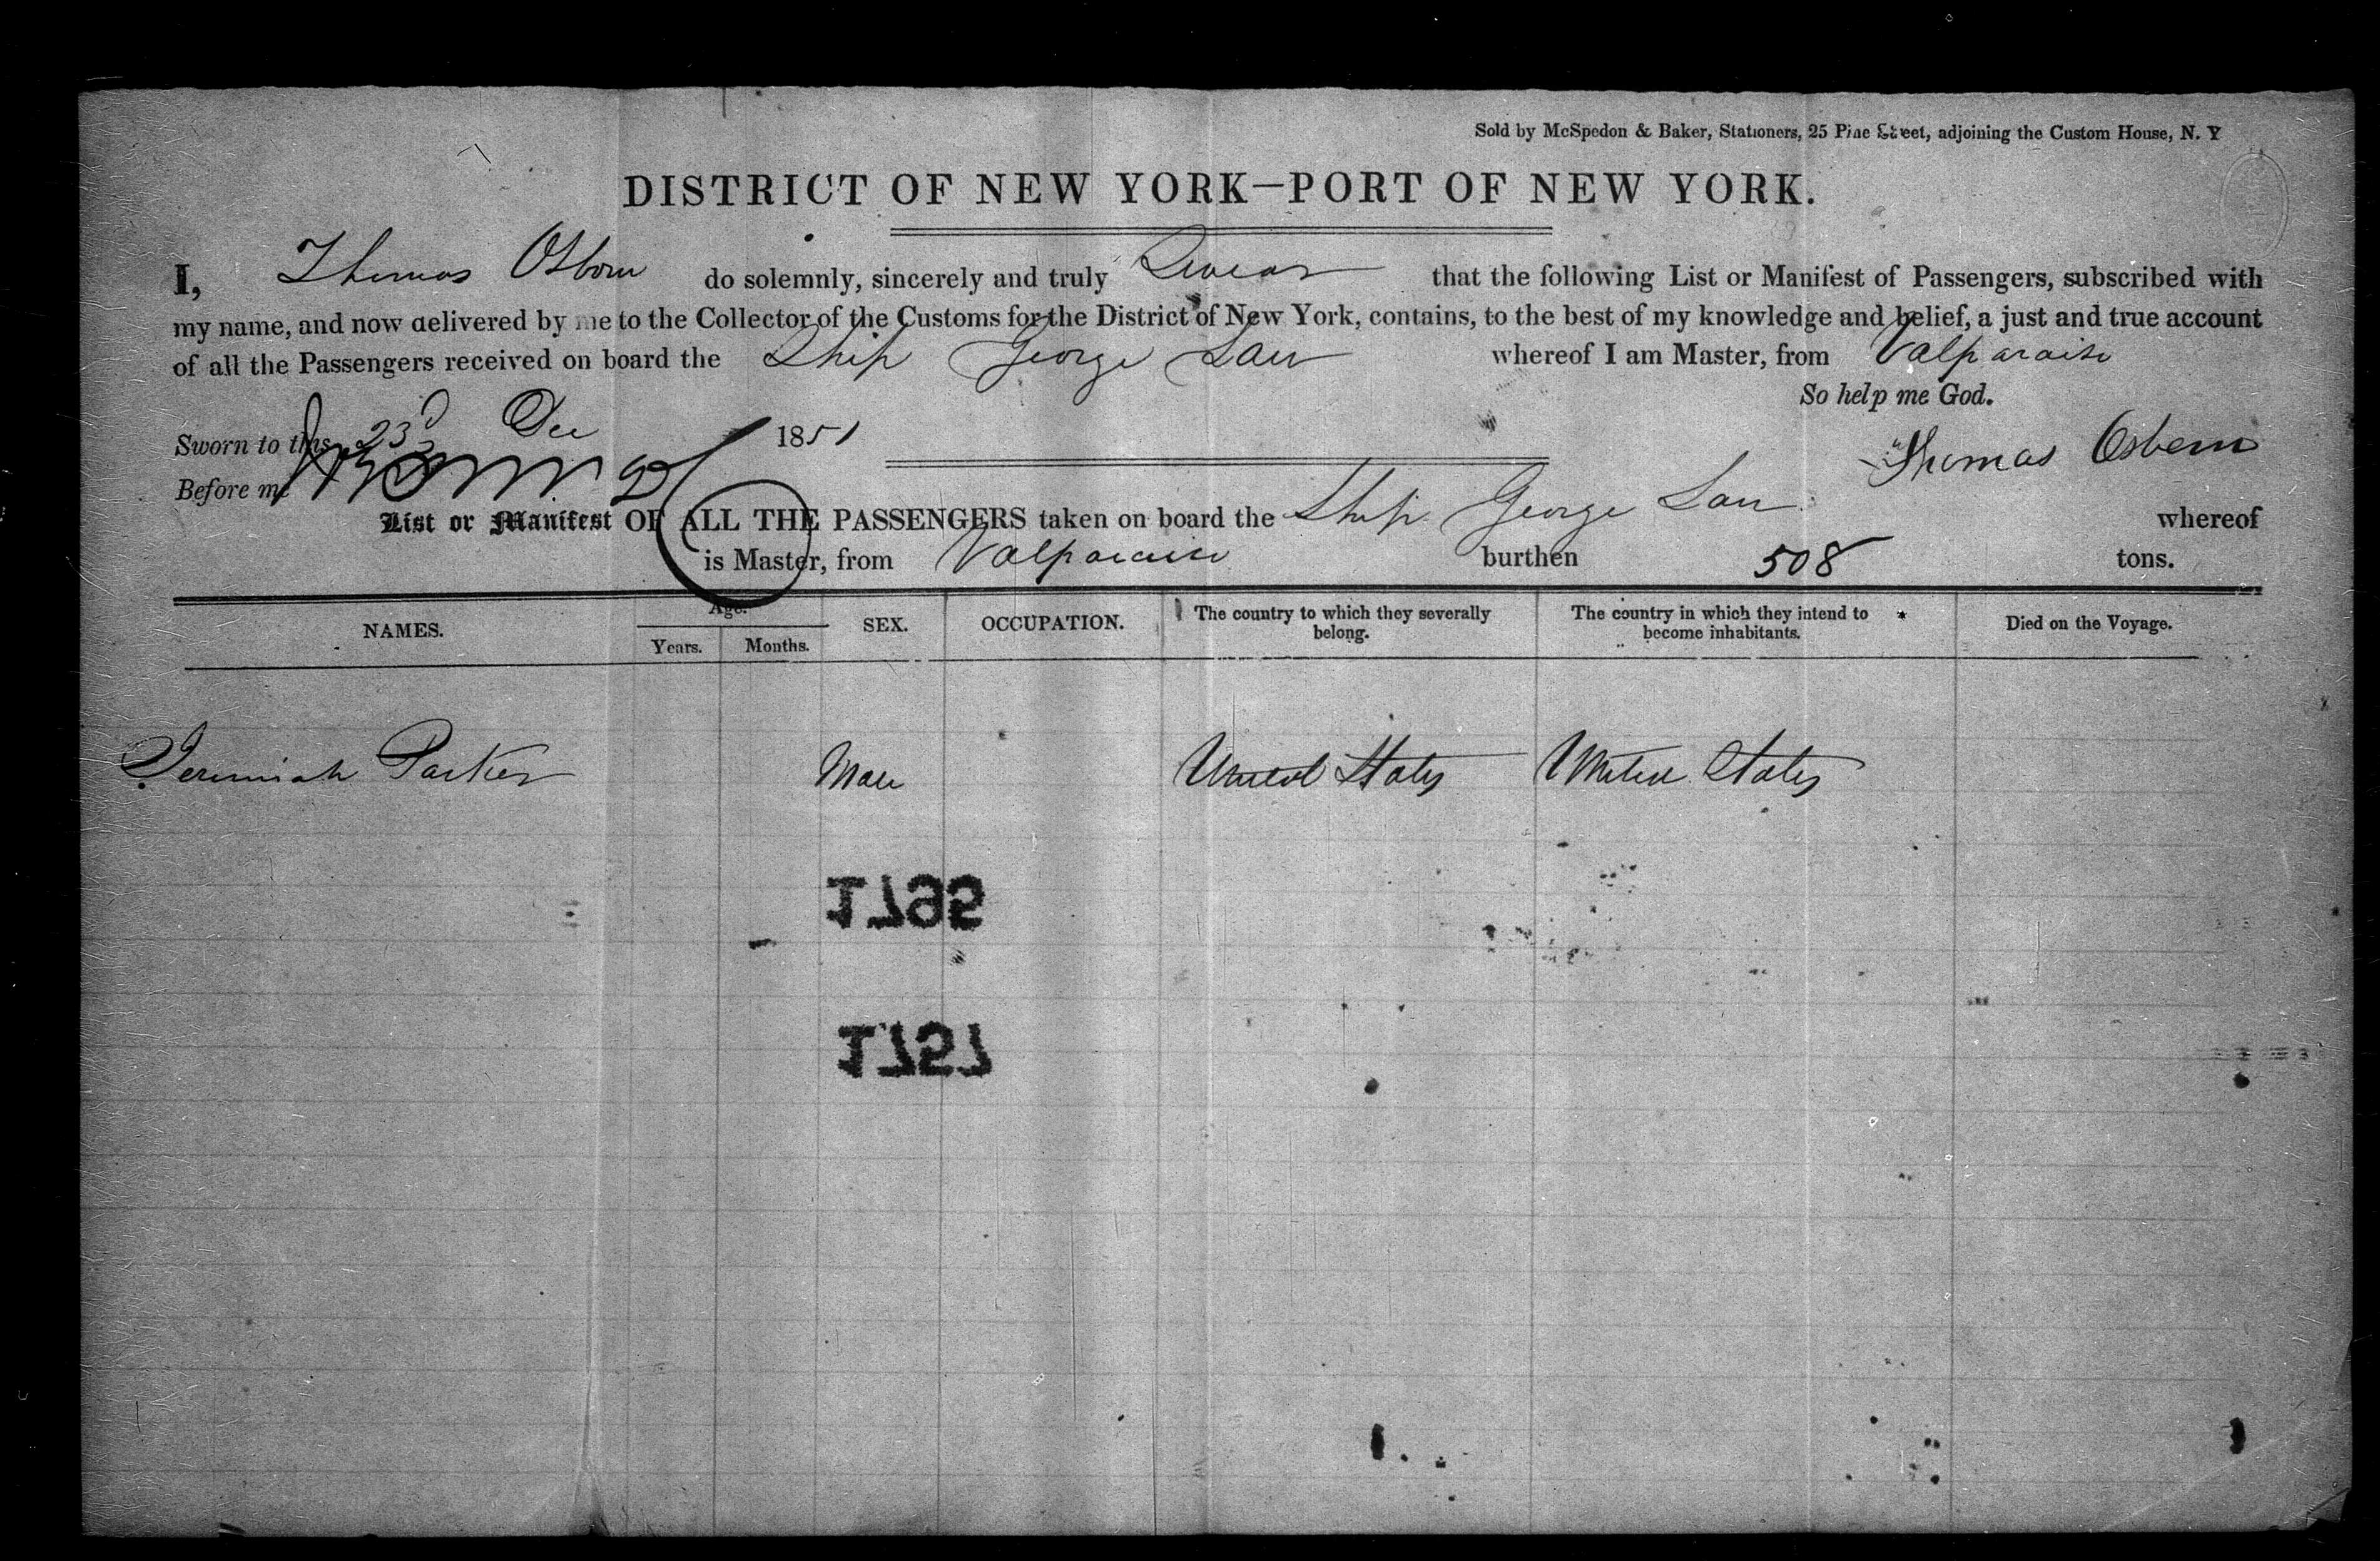 Sold by McSpedon & Baker, Stationers, 25 Pine Street, adjoining the Custom House, N. Y
DISTRICT OF NEW YORK—PORT OF NEW YORK.
I, Thomas Osborn do solemnly, sincerely and truly Swear that the following List or Manifest of Passengers, subscribed with
my name, and now delivered by me to the Collector of the Customs for the District of New York, contains, to the best of my knowledge and belief, a just and true account
of all the Passengers received on board the Ship George Law whereof I am Master, from Valparaiso
So help me God.
Sworn to this 23d Dec 1851
Thomas Osborn
Before me
List or Manifest OF ALL THE PASSENGERS taken on board the Ship George Law whereof
is Master, from Valparaiso burthen 508 tons.
NAMES. Age. Years. Months. SEX. OCCUPATION. The country to which they severally belong. The country in which they intend to become inhabitants. Died on the Voyage.
Jeremiah Parker Male United States United States
1795
1757